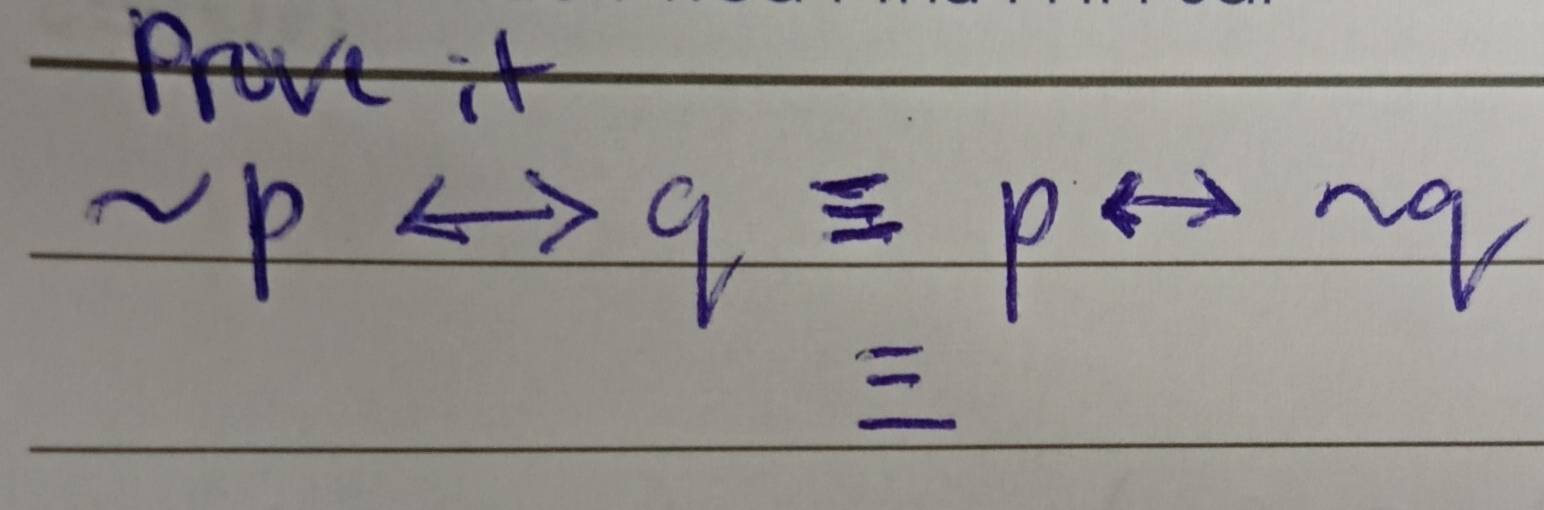 Prove it
~p ↔ q ≡ p ↔ ~q
≡